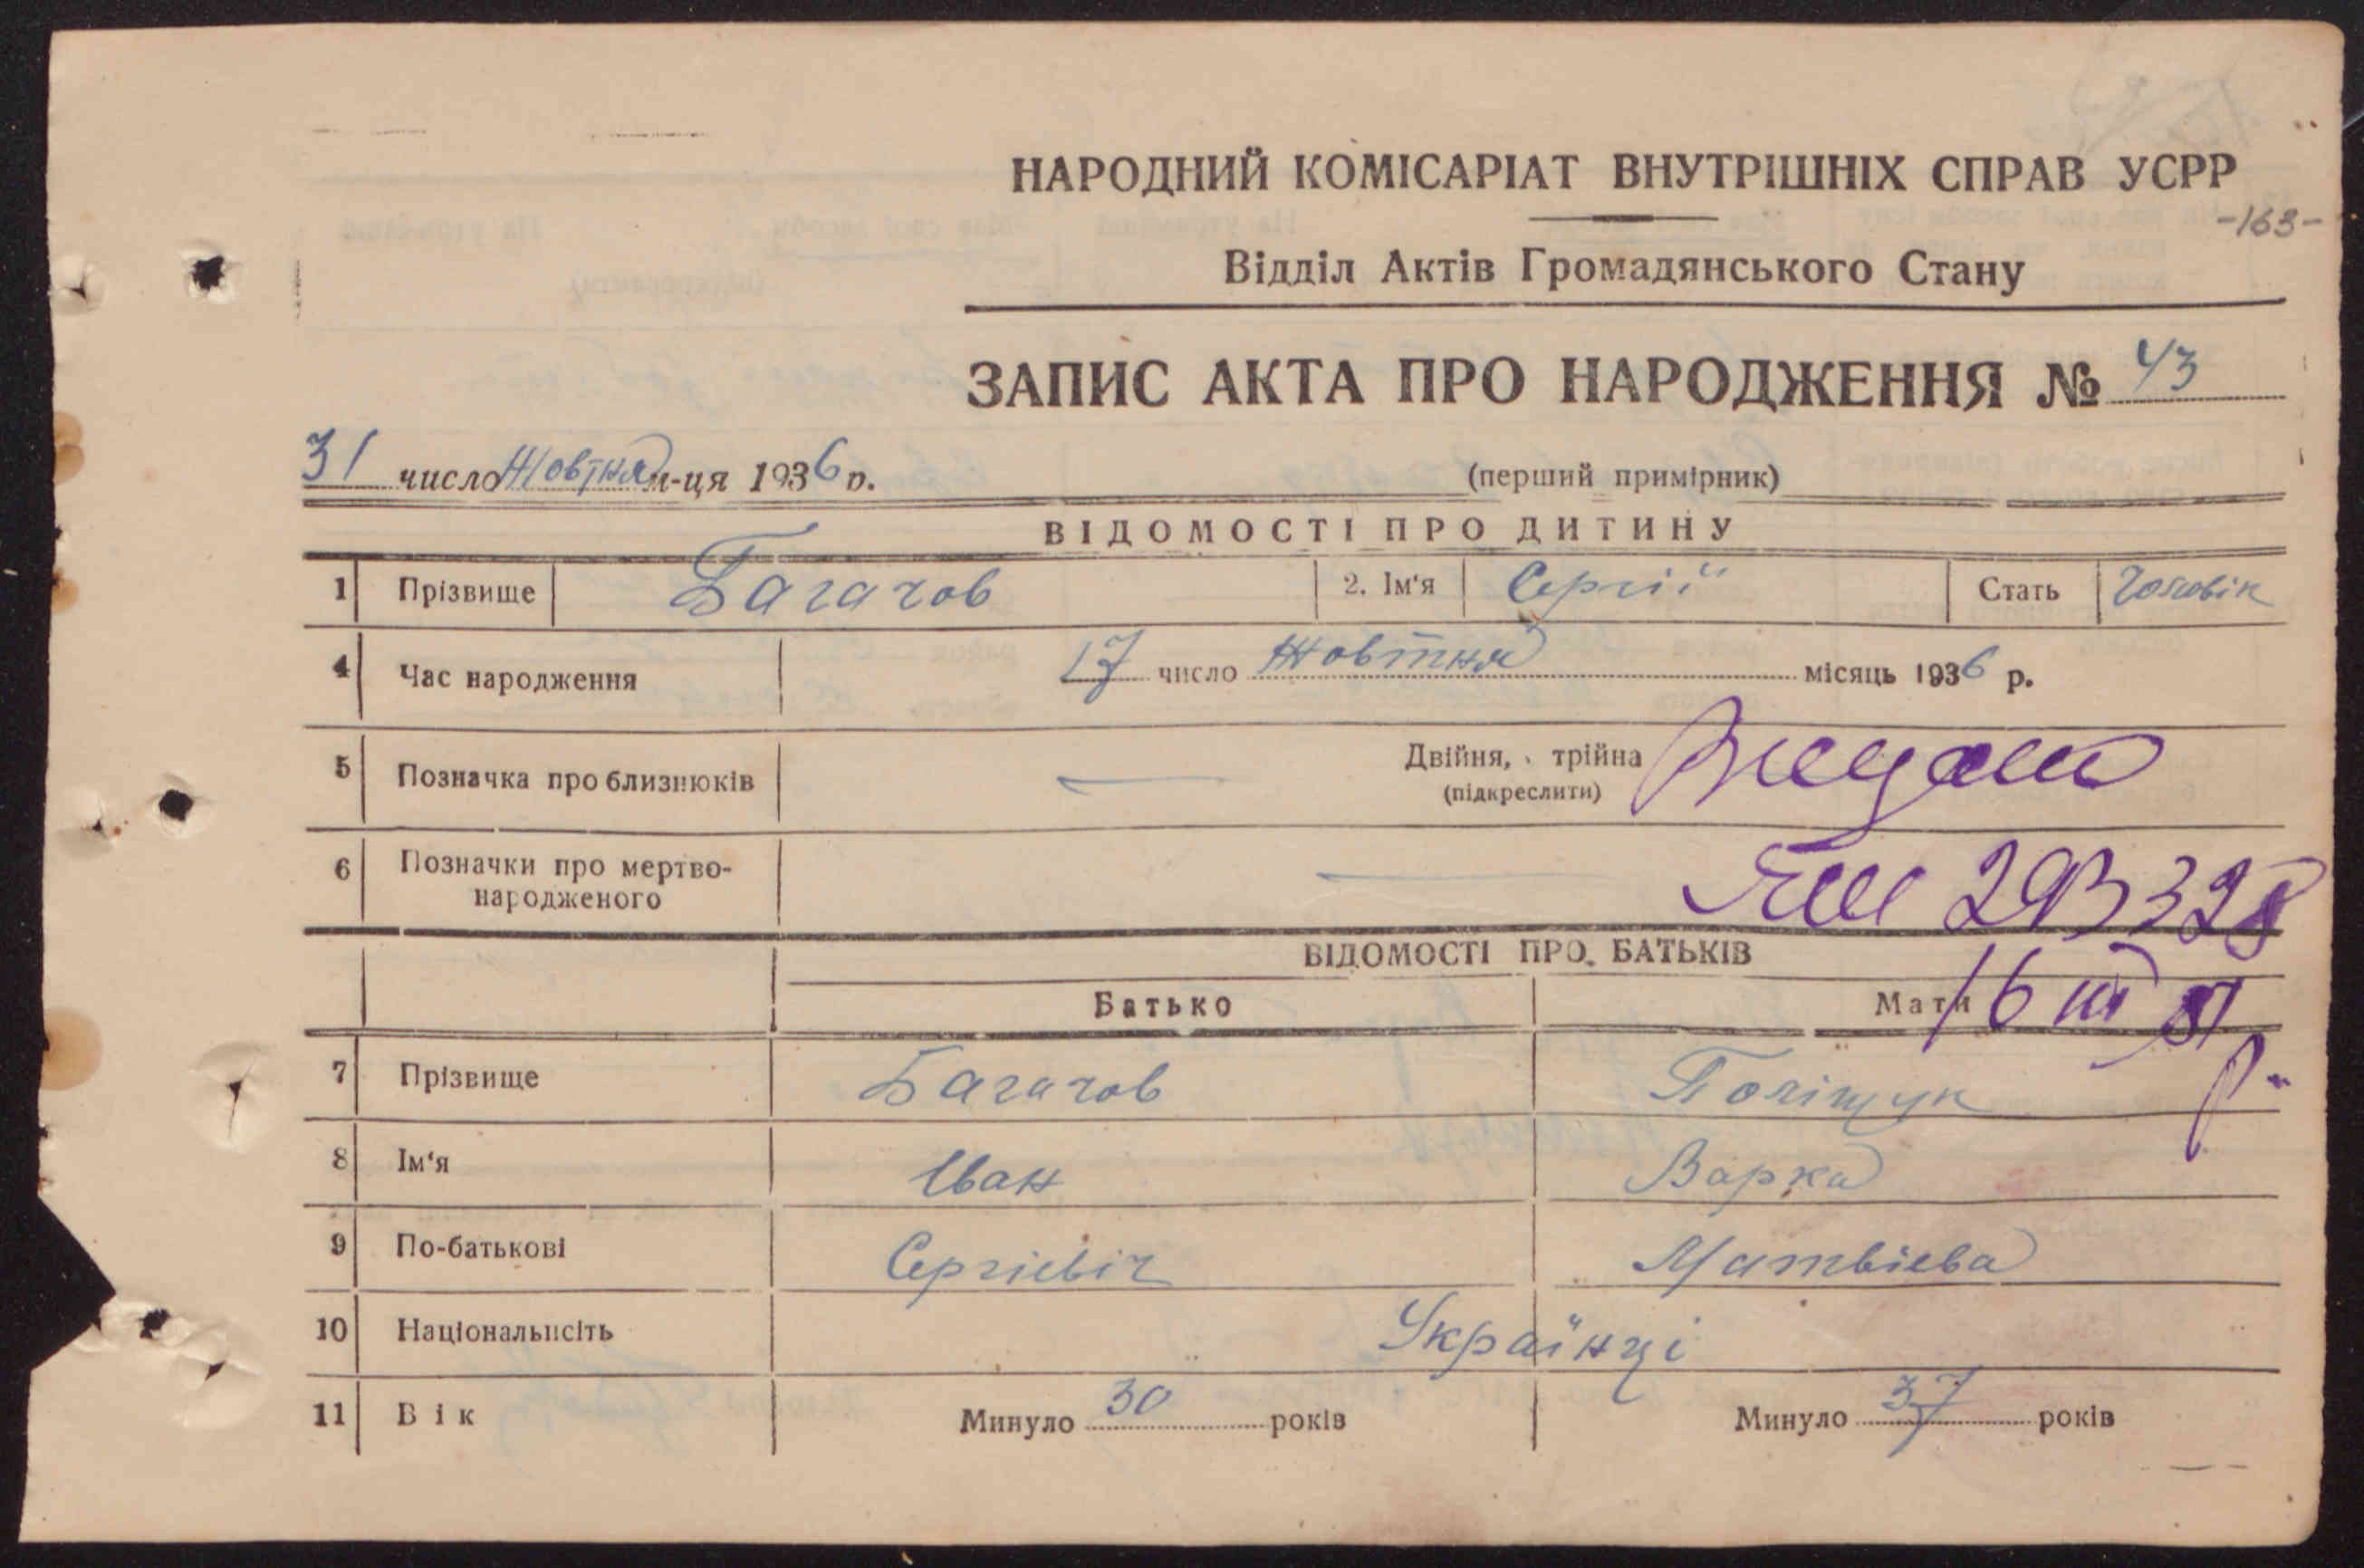 НАРОДНИЙ КОМІСАРІАТ ВНУТРІШНІХ СПРАВ УСРР
-163-
Відділ Актів Громадянського Стану
ЗАПИС АКТА ПРО НАРОДЖЕННЯ № 43
31 число Жовтня м-ця 1936 р.
(перший примірник)
ВІДОМОСТІ ПРО ДИТИНУ
1 Прізвище Багачов 2. Ім'я Сергій Стать Чоловік
4 Час народження 17 число Жовтня місяць 1936 р.
5 Позначка про близнюків — Двійня, трійна
(підкреслити)
6 Позначки про мертво-
народженого —
293328
ВІДОМОСТІ ПРО БАТЬКІВ
Батько Мати
16 III
р.
7 Прізвище Багачов Поліщук
8 Ім'я Іван Варка
9 По-батькові Сергієвіч Матвієва
10 Національнсіть Українці
11 Вік Минуло 30 років Минуло 37 років